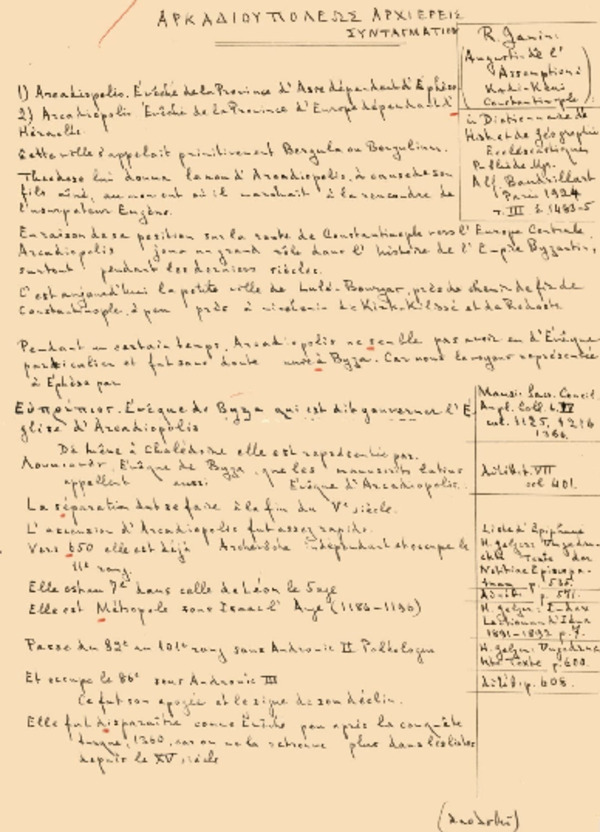 ΑΡΚΑΔΙΟΥΠΟΛΕΩΣ ΑΡΧΙΕΡΕΙΣ
ΣΥΝΤΑΓΜΑΤΙΟΝ
R. Janin:
(Augustin de l'
Assomption à
Kadi-Köui
Constantinople)
in Dictionnaire de
Hist. et de Géographie
Ecclésiastiques
Publié de Mgr.
Alf. Baudrillart
Paris 1924
τ. III σ. 1483-5
1) Arcadiopolis. Évêché de la Province d'Asie dépendant d'Éphèse
2) Arcadiopolis Évêché de la Province d'Europe dépendant d'
Héraclée.
Cette ville s'appelait primitivement Bergula ou Bergulium.
Théodose lui donna le nom d'Arcadiopolis, à cause de son
fils aîné, au moment où il marchait à la rencontre de
l'usurpateur Eugène.
En raison de sa position sur la route de Constantinople vers l'Europe Centrale,
Arcadiopolis joua un grand rôle dans l'histoire de l'Empire Byzantin,
surtout pendant les derniers siècles.
C'est aujourd'hui la petite ville de Lulé-Bourgaz, près de chemin de fer de
Constantinople, à peu près à mi-chemin de Kirk-Kilissé et de Rodosto
Pendant un certain temps, Arcadiopolis ne semble pas avoir eu d'Évêque
particulier et fut sans doute unie à Byza. Car nous la voyons représentée
à Éphèse par
Εὐπρέπιος. Évêque de Byza qui est dit gouverner l'É-
glise d'Arcadiopolis
Mansi. Sacr. Concil.
Ampl. Coll. t. IV
col. 1125, 1216
1364.
De même à Chalédoine elle est représentée par
Évêque de Byza, que les manuscrits latins
appellent aussi Évêque d'Arcadiopolis.
VII
col 401.
La séparation dut se faire à la fin du Ve siècle.
L'ascension d'Arcadiopolis fut assez rapide.
Vers 650 elle est déjà Archevêché indépendant et occupe le
11e rang.
Liste d'Épiphane
H. Gelzer: Ungedru-
ckte Texte der
Notitiae Episcopa-
tuum p. 535.
Elle est au 7e dans celle de Léon le Sage
p. 551.
Elle est Métropole sous Isaac l'Ange (1185-1195)
H. Gelzer: Index
Lectionum d'Iéna
1891-1892 p. 7.
Passe du 82e au 101e rang sous Andronic II Paléologue
H. Gelzer. Ungedruckte Texte p. 600.
Et occupe le 86e sous Andronic III
p. 608.
Ce fut son apogée et le signe de son déclin.
Elle fut disparaître comme Évêché peu après la conquête
turque, 1360, car on ne la retrouve plus dans les listes
depuis le XV siècle